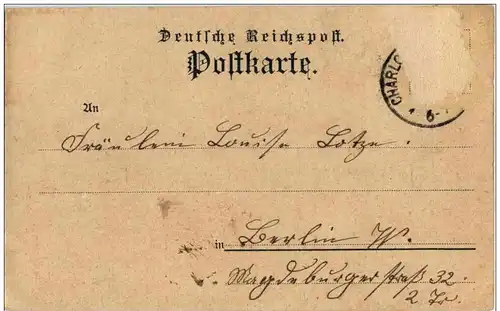 Deutsche Reichspost.
Postkarte.
CHARLO
6-7
An
Fräulein Louise Lotze.
in Berlin W.
Magdeburgerstraß 32.
2 Tr.